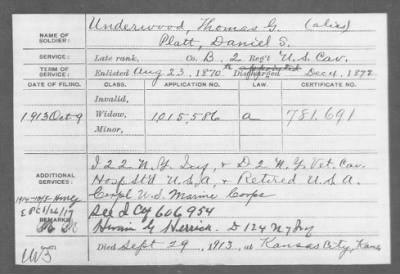 Underwood, Thomas G. (alias)
NAME OF SOLDIER: Platt, Daniel S.
SERVICE: Late rank, Co. B. 2 Reg't U.S. Cav.
TERM OF SERVICE: Enlisted Aug 23, 1870 Discharged Dec 4, 1878
DATE OF FILING. CLASS. APPLICATION NO. LAW. CERTIFICATE NO.
Invalid,
1913 Oct 9 Widow, 1,015,586 a 781,691
Minor,
ADDITIONAL SERVICES: I 22 N.Y. Inf, & D 2 N.Y. Vet. Cav.
Hosp Std U.S.A, & Retired U.S.A.
Corpl U.S. Marine Corps
REMARKS: See I Cf 606,954
G Herrick. D 124 N.Y. Inf
Died Sept 29, 1913, at Kansas City, Kans